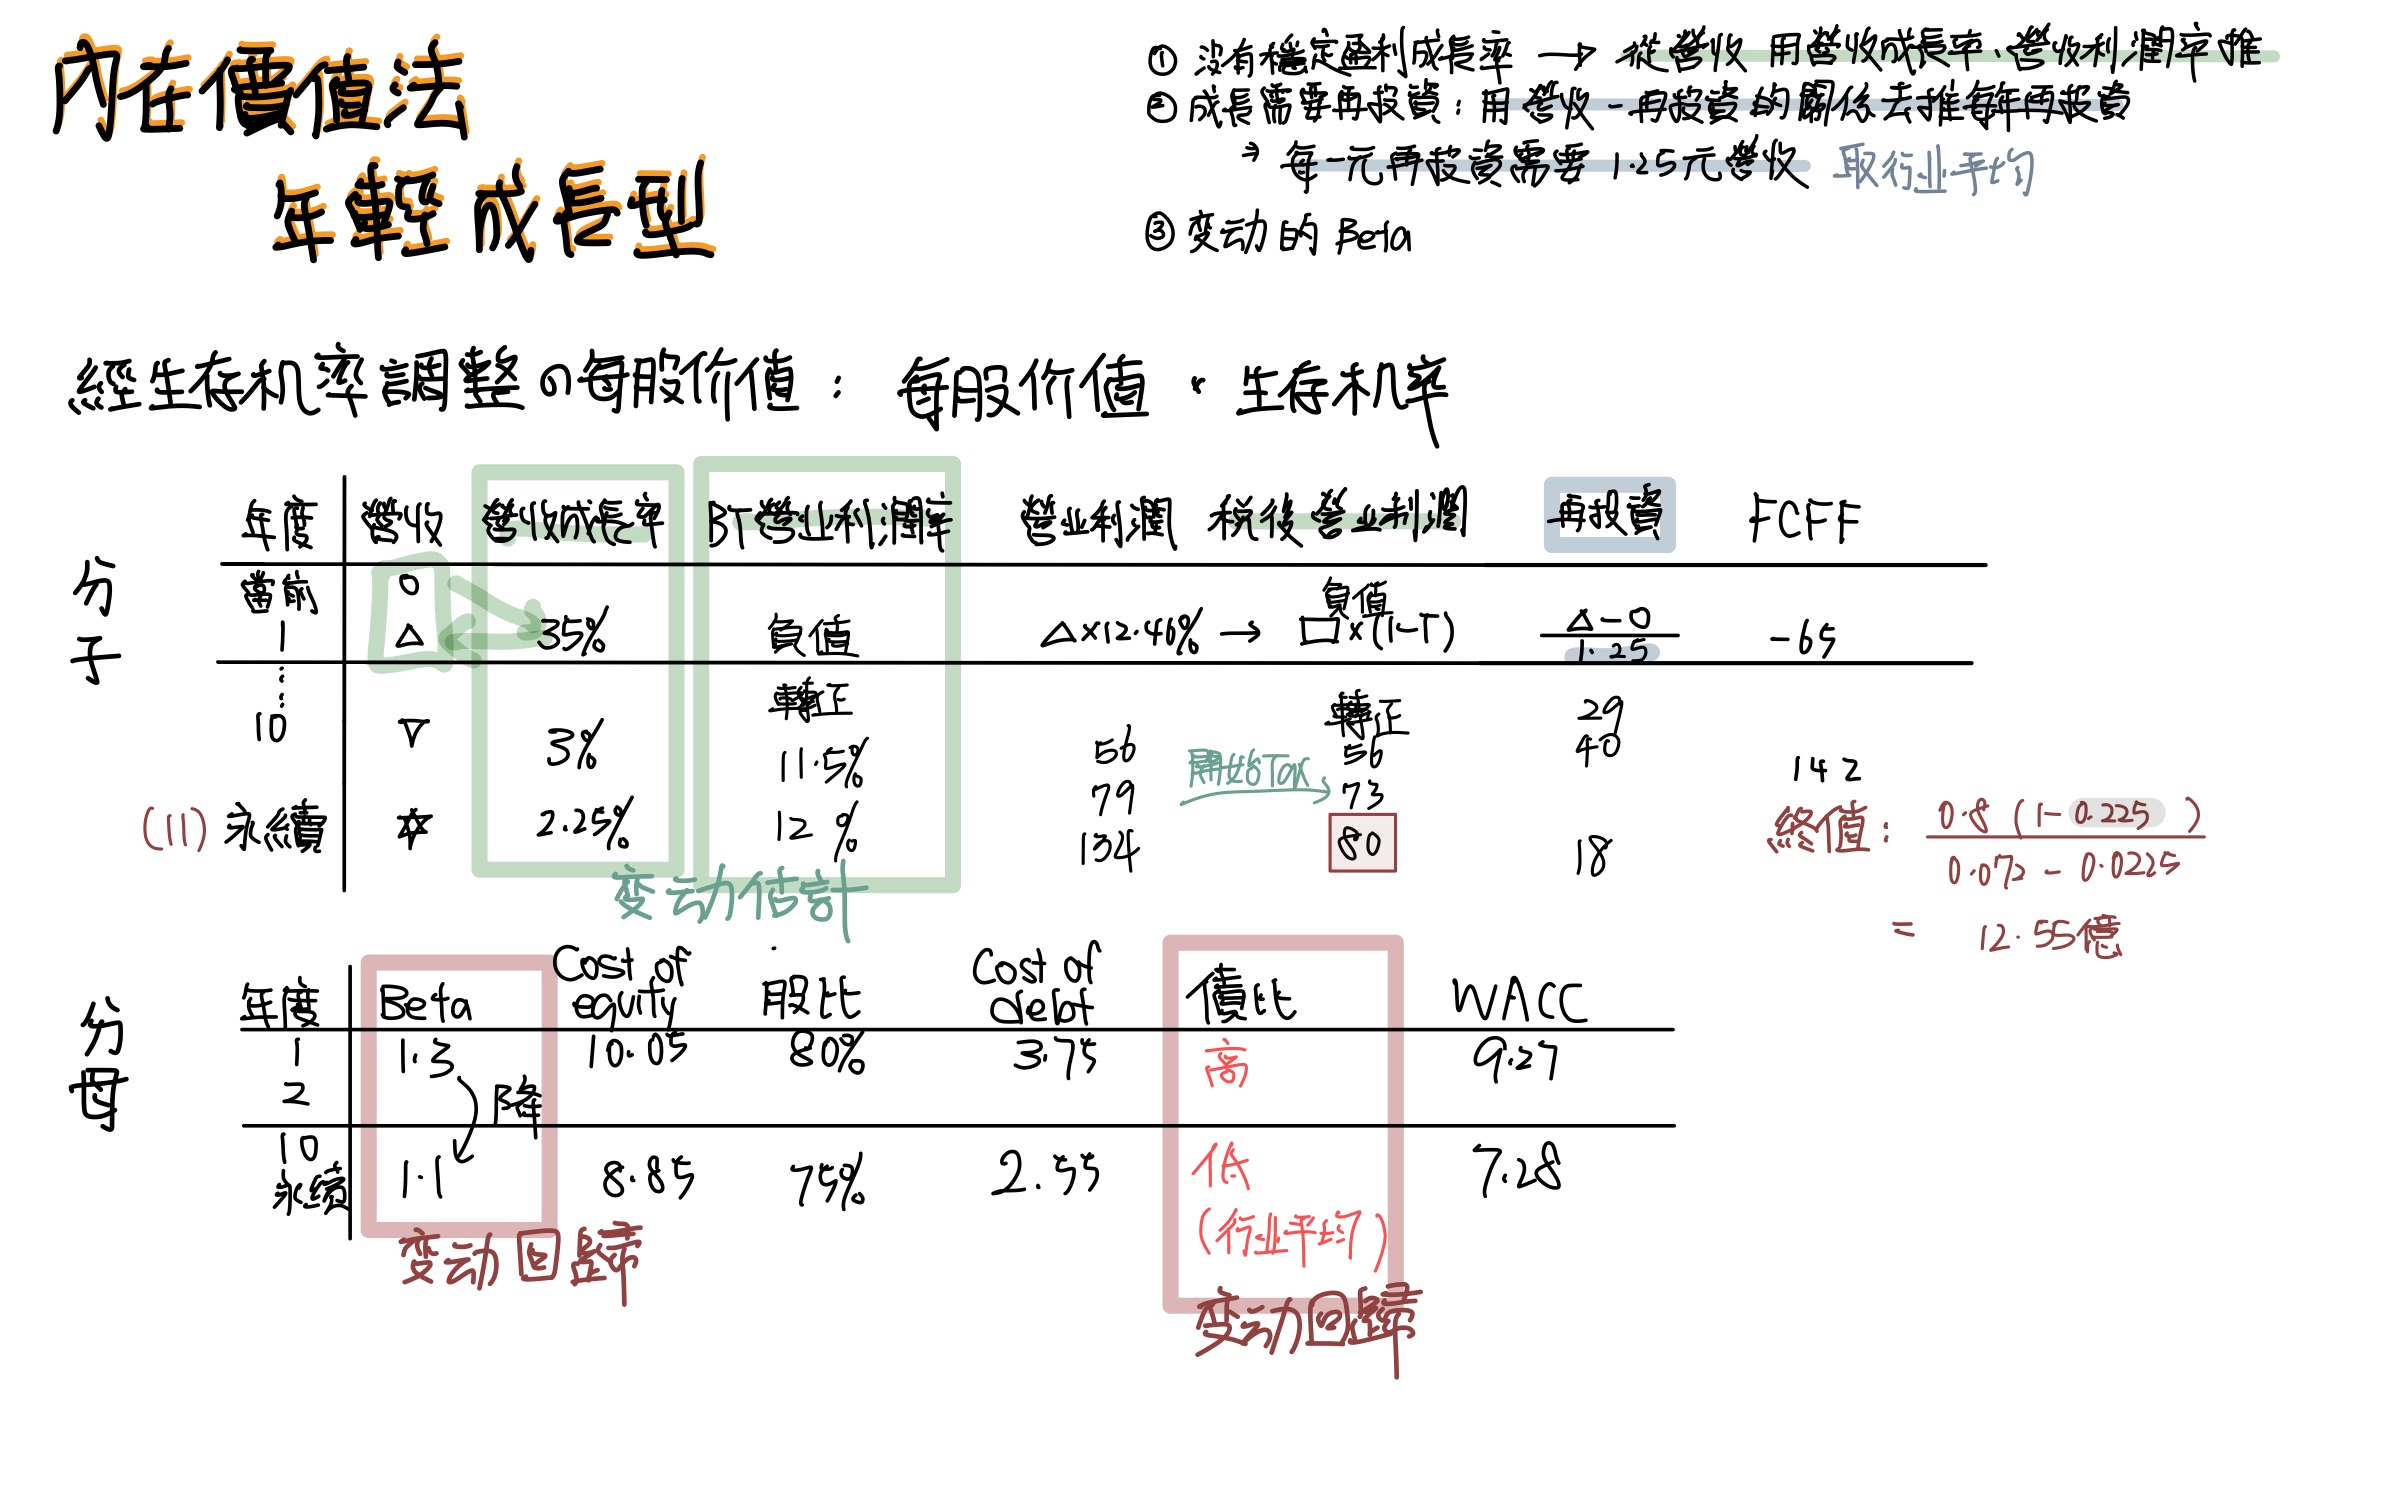 內在價值法
年輕成長型
① 沒有穩定盈利成長率 → 從營收 用營收成長率、營收利潤率推
② 成長需要再投資：用營收-再投資的關係去推每年再投資
→ 每一元再投資需要 1.25元營收 取行业平均
③ 变动的 Beta
經生存机率調整の每股价值： 每股价值 · 生存机率
分子
年度 營收 營收成長率 BT營业利潤率 營业利潤 稅後營业利潤 再投資 FCFF
當前 O
1 △ 35% 負值 △×12.46% → 負值 □×(1-T) △-O / 1.25 -65
⋮ 轉正 轉正 29
10 ▽ 3% 11.5% 56 開始Tax 56 40 142
79 73
(11) 永續 ☆ 2.25% 12% 134 80 18
終值： 0.8 (1-0.225) / 0.073 - 0.0225
= 12.55億
变动估計
分母
年度 Beta Cost of equity 股比 Cost of debt 債比 WACC
1 1.3 10.05 80% 3.75 高 9.27
2 降
10
永續 1.1 8.85 75% 2.55 低 7.28
(行业平均)
变动回歸
变动回歸